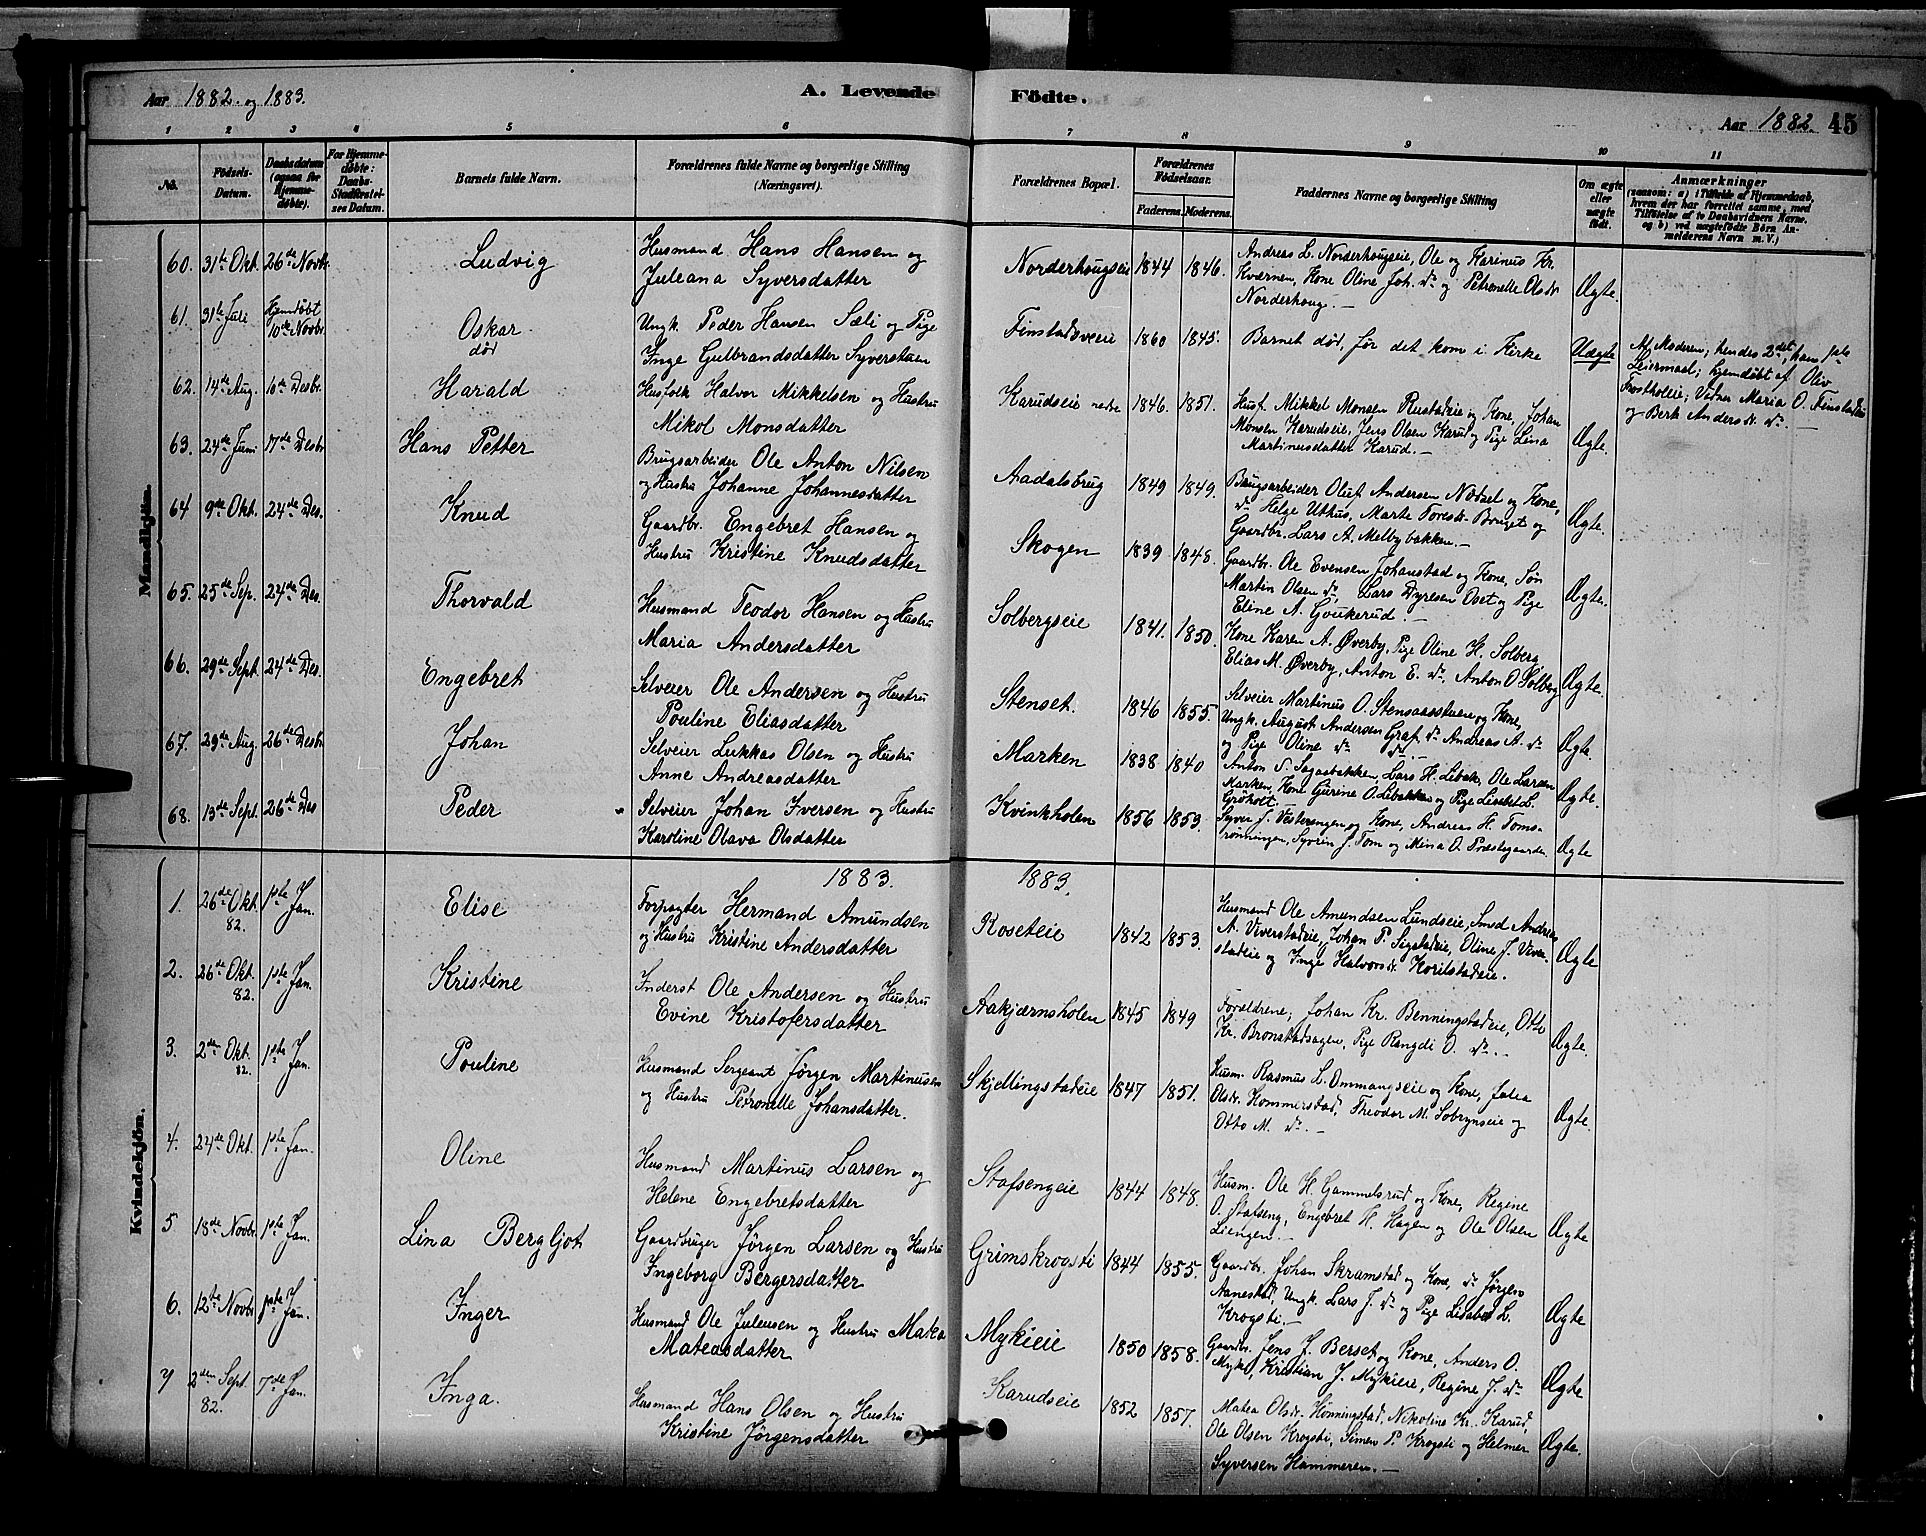 Aar 1882. og 1883.
A. Levende
Födte.
Aar 1882. 45
1 2 3 4 5 6 7 8 9 10 11
No.
Födsels-Datum.
Daabsdatum (ogsaa for Hjemme-döbte).
For Hjemme-döbte: Daabs-Stadfæstel-ses Datum.
Barnets fulde Navn.
Forældrenes fulde Navne og borgerlige Stilling (Næringsvei).
Forældrenes Bopæl.
Forældrenes Födselsaar.
Faderens. Moderens.
Faddernes Navne og borgerlige Stilling
Om ægte eller uægte födt.
Anmærkninger
(saasom: a) i Tilfælde af Hjemmedaab, hvem der har forrettet samme, med Tilföielse af to Daabsvidners Navne, og b) ved uægtefödte Börn An-melderens Navn m. V.)
Mandkjön.
60. 31te Okt. 26de Novbr. Ludvig
Husmand Hans Hansen og
Juleana Syversdatter
Norderhougseie 1844 1846.
Andreas L. Norderhougseie, Ole og Karinus Kr.
Kværnen, Kone Oline Joh. do og Petronelle Olsdr
Norderhoug. —
Ægte.
61. 31te Juli Hjemdøbt 10de Novbr. Oskar
død
Ungk. Peder Hansen Sæli og Pige
Inge Gulbrandsdatter Syverstuen
Finstadsveie 1860 1845.
Barnet død, før det kom i Kirke
Uægte
Af Moderen; hendes 2det, hans 1ste
Leiermaal; hjemdøbt af Oliv
Frostholeie; Vidner Maria O. Finstadeie
og Berte Andersdr. do. —
62. 14de Aug. 10de Desbr. Harald
Husfolk Halvor Mikkelsen og Hustru
Mikol Monsdatter
Karudseie nedre 1846. 1851.
Husf. Mikkel Monsen Rustadeie og Kone, Johan
Monsen Karudseie, Jens Olsen Karud og Pige Lina
Martinusdatter Karud. —
Ægte.
63. 24de Juni 17de Desbr Hans Petter
Brugsarbeider Ole Anton Nilsen
og Hustru Johanne Johannesdatter
Aadalsbrug 1849 1849.
Brugsarbeider Oluf Andersen Nodset og Kone,
do Helge Uthus, Marte Forestr. Bruget og
Gaardbr. Lars A. Melbybakken. —
Ægte.
64 9de Okt. 24de Des. Knud
Gaardbr. Engebret Hansen og
Hustru Kristine Knudsdatter
Skogen 1839 1848.
Gaardbr. Ole Evensen Johanstad og Kone, Søn
Martin Olsen do, Lars Dyresen Oset og Pige
Eline A. Goukerud. —
Ægte.
65. 25de Sep. 24de Des. Thorvald
Husmand Teodor Hansen og Hustru
Maria Andersdatter
Solbergseie 1841. 1850.
Kone Karen A. Øverby, Pige Oline H. Solberg,
Elias M. Øverby, Anton E. do, Anton O. Solberg
Ægte.
66. 29de Sept. 24de Des. Engebret
Selveier Ole Andersen og Hustru
Pouline Eliasdatter
Stenset. 1846 1855.
Selveier Martinus O. Stensaasstuen og Kone,
Ungk. August Andersen Graf, do Andreas A. do
og Pige Oline do do
Ægte.
67. 29de Aug. 26de Desbr Johan
Selveier Lukkas Olsen og Hustru
Anne Andreasdatter
Marken 1838 1840
Anton S. Sagaasbakken, Lars H. Libak, Ole Larsen
Marken, Kone Gurine O. Libakken og Pige Lisabet L.
Grøholt. —
Ægte.
68. 13de Sept. 26de Des Peder
Selveier Johan Iversen og Hustru
Karoline Olava Olsdatter
Kvinkholen 1856 1853.
Syver J. Vesterengen og Kone, Andreas H. Toms-
rønningen, Syvrin J. Tom og Mina O. Præstegaarden.
Ægte
1883. 1883.
Kvindekjön.
1. 26de Okt. 82. 1ste Jan. Elise
Forpagter Hermand Amundsen
og Hustru Kristine Andersdatter
Koseteie 1842 1853.
Husmand Ole Amundsen Lundseie, Smed Andreas
A. Viverstadeie, Johan P. Sigstadeie, Oline J. Viver-
stadeie og Inge Halvorsdr. Korilstadeie.
Ægte
2. 26de Okt. 82. 1ste Jan. Kristine
Inderst Ole Andersen og Hustru
Evine Kristofersdatter
Aakjærnsholen 1845 1849
Forældrene, Johan Kr. Benningstadeie, Otto
Kr. Bronstadsagen, Pige Rangdi O. do. —
Ægte.
3. 2den Okt. 82. 1ste Jan. Pouline
Husmand Sergeant Jørgen Martinusen
og Hustru Petronelle Johansdatter.
Skjellingstadeie 1847 1851.
Husm. Rasmus L. Ommangseie og Kone, Julea
Olsdr. Hommerstad, Theodor M. Sobrynseie og
Otto M. do. —
Ægte.
4. 24de Okt. 1ste Jan. Oline
Husmand Martinus Larsen og
Helene Engebretsdatter
Stafsengeie 1844 1848.
Husm. Ole H. Gammelsrud og Kone, Regine
O. Stafseng, Engebret H. Hagen og Ole Olsen
Liengen. —
Ægte
5 18de Novbr. 1ste Jan. Lina Bergljot
Gaardbruger Jørgen Larsen og Hustru
Ingeborg Bergersdatter
Grimskrogsti 1844 1855.
Gaardbr. Johan Skramstad og Kone, do Jørgen
Aanestad, Ungk. Lars J. do og Pige Lisabet L.
Krogsti. —
Ægte
6. 12te Novbr 1ste Jan. Inger
Husmand Ole Juleusen og Hustru Matea
Mateasdatter
Mykieie 1850 1858.
Gaardbr. Jens J. Berset og Kone, Anders O.
Myke, Kristian J. Mykieie, Regine J. do
Ægte
7 2den Sept. 82. 7de Jan. Inga.
Husmand Hans Olsen og Hustru
Kristine Jørgensdatter
Karudseie 1852 1857.
Matea Olsdr. Hønningstad, Nikoline Kr. Karud,
Ole Olsen Krogsti, Simen P. Krogsti og Helmer
Syversen Hammeren. —
Ægte.